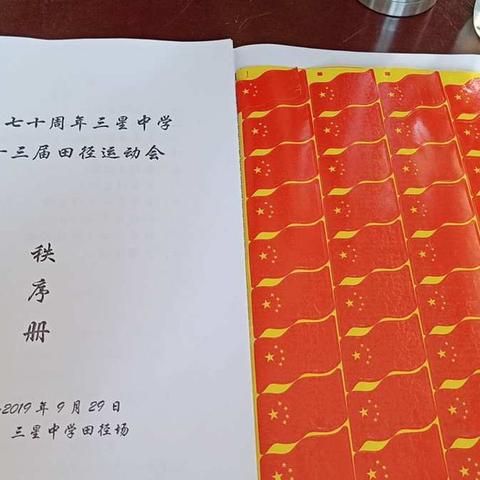 七十周年三星中学
十三届田径运动会
秩
序
册
2019年9月29日
三星中学田径场